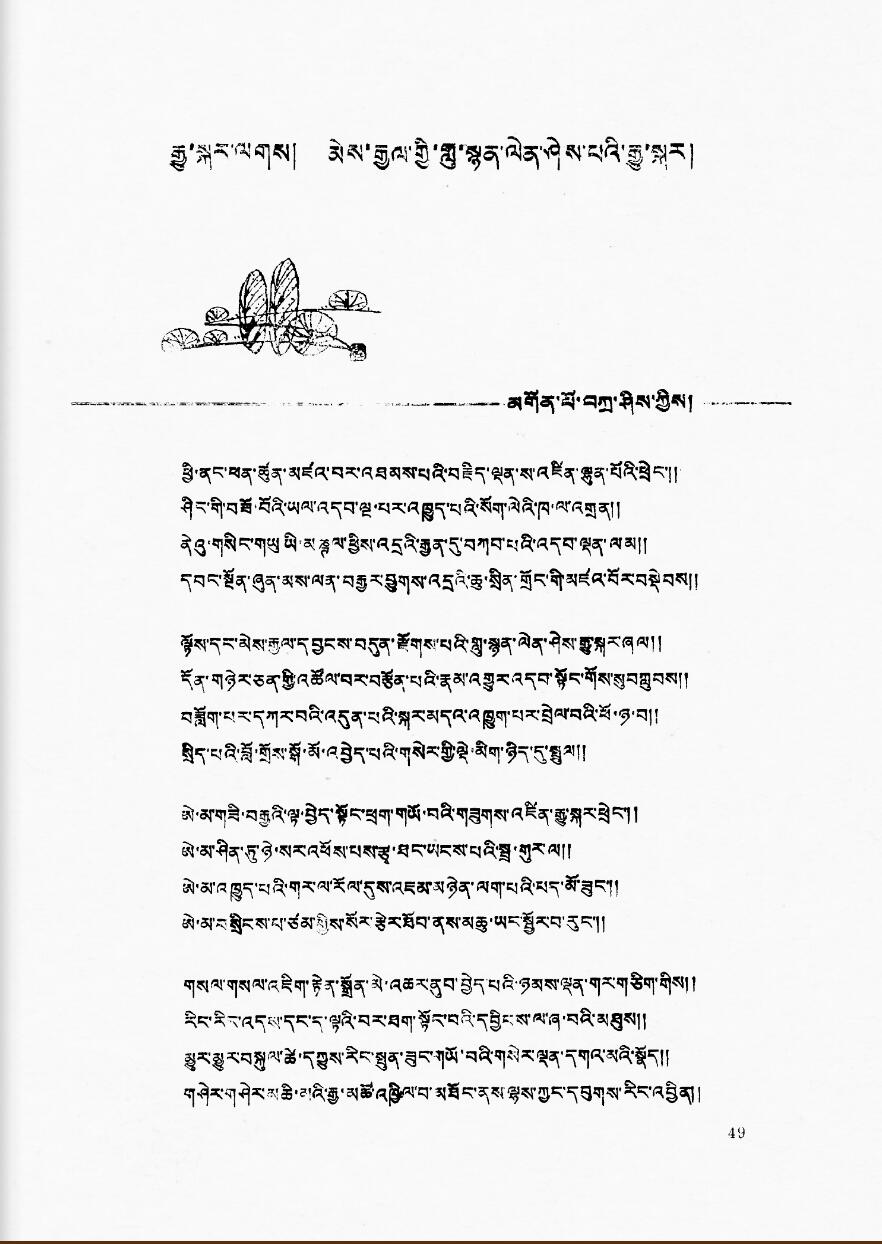 རྒྱུ་སྐར་ལགས། མེས་རྒྱལ་གྱི་གླུ་སྙན་ལེན་ཤེས་པའི་རྒྱུ་སྐར།
མགོན་པོ་བཀྲ་ཤིས་ཀྱིས།
ཕྱི་ནང་ཕན་ཚུན་མཛའ་བར་འཐམས་པའི་བརྗིད་ལྡན་ས་འཛིན་ལྷུན་པོའི་ཕྲེང་།།
ཤིང་གི་བཐོ་བོའི་ཡལ་འདབ་ལྔ་པར་འཁྱུད་པའི་སོག་ལེའི་ཁ་ལ་འགྲན།།
ནེའུ་གསིང་གཡུ་ཡི་མཎྜལ་ཕྱིས་འདྲའི་རྒྱན་དུ་བཀབ་པའི་འདབ་ལྡན་ལམ།།
དབང་སྔོན་ཞུན་མས་ལན་བརྒྱར་བྱུགས་འདྲའི་ཆུ་སྲིན་གྲོང་གི་མཛའ་བོར་བསྡེབས།།
ལྟོས་དང་མེས་རྒྱལ་དབྱངས་བདུན་རྫོགས་པའི་གླུ་སྙན་ལེན་ཤེས་རྒྱུ་སྐར་ཞལ།།
དོན་གཉེར་ཅན་གྱི་འཚོལ་བར་བརྩོན་པའི་རྣམ་འགྱུར་འདབ་སྟོང་གོས་སུབཀླུབས།།
བཟློག་པར་དཀར་བའི་འདུན་པའི་སྐར་མདའ་འཁྱུག་པར་བྲེལ་བའི་ཕོ་ཉ་བ།།
སྲིད་པའི་བློ་གྲོས་སྒོ་མོ་འབྱེད་པའི་གསེར་གྱི་ལྡེ་མིག་ཉིད་དུ་སྤྲུལ།།
ཨེ་མ་གཟི་བརྒྱའི་ལྟ་བྱེད་སྟོང་ཕྲག་གཡོ་བའི་གཟུགས་འཛིན་རྒྱུ་སྐར་ཕྲེང་།།
ཨེ་མ་ཤིན་ཏུ་ཉེ་སར་འཕོས་པས་རྩྭ་ཐང་ཡངས་པའི་སྦྲ་གུར་ལ།།
ཨེ་མ་འཁྱུད་པའི་གར་ལ་རོལ་དུས་འཇམ་མཉེན་ལག་པའི་པད་མོ་ཟུང་།།
ཨེ་མ་བསྲིངས་པ་ཙམ་གྱིས་སོར་རྩེར་ཐོབ་ནས་མཆུ་ཡང་སྦྱོར་བ་རུང་།།
གསལ་གསལ་འཇིག་རྟེན་སྒྲོན་མེ་འཆར་ནུབ་བྱེད་པའི་ཉམས་ལྡན་གར་གཅིག་གིས།།
རིང་རིང་འདས་དང་ད་ལྟའི་བར་ཐག་སྟོང་བའི་དབྱིངས་ལ་ཞ་བའི་མཐུས།།
མྱུར་མྱུར་བསྐུལ་ཚེ་དཀྱུས་རིང་སྤྱན་ཟུང་གཡོ་བའི་གསེར་ལྡན་དགའ་མའི་སྣོད།།
གཤེར་གཤེར་མཆི་མའི་རྒྱ་མཚོ་འཁྱིལ་བ་མཐོང་ནས་ལྷས་ཀྱང་དབུགས་རིང་འབྱིན།།
49